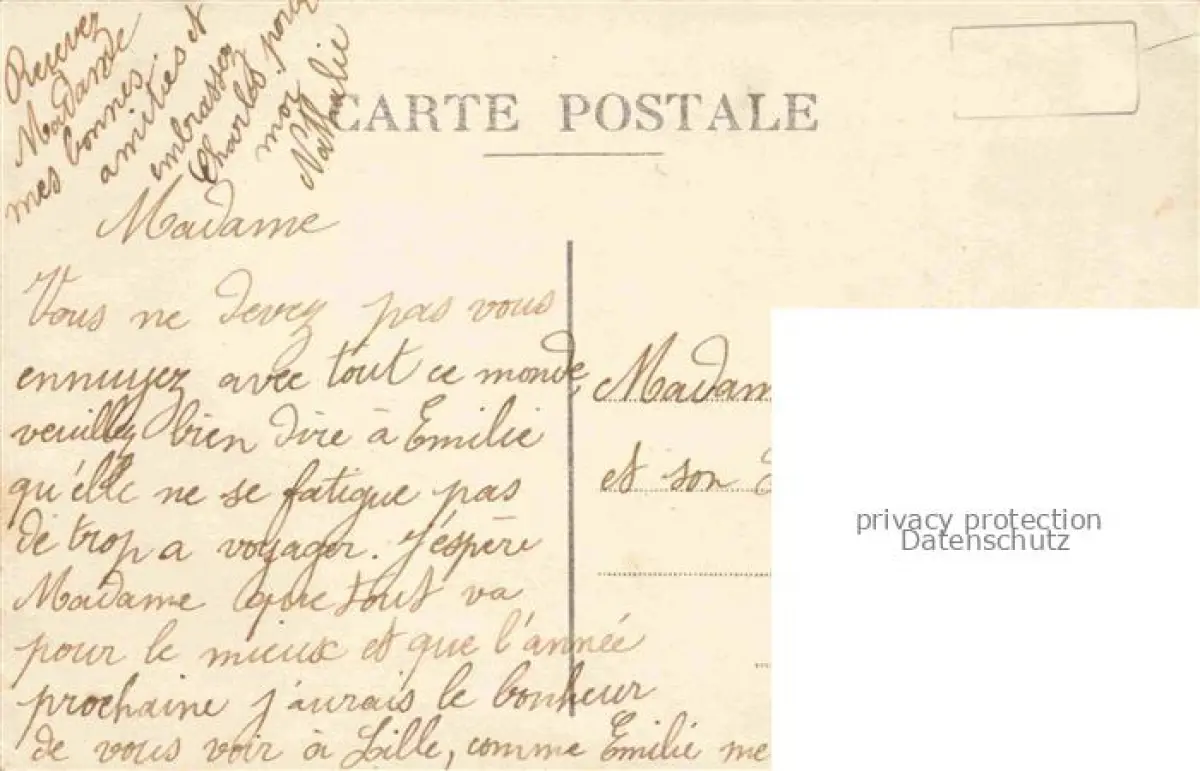 Recevez
Madame
mes bonnes
amitiés et
embrassez
Charles pour
moi
Nathalie
CARTE POSTALE
Madame
Vous ne devez pas vous
ennuyez avec tout ce monde,
veuillez bien dire à Emilie
qu'elle ne se fatigue pas
de trop a voyager. J'éspère
Madame que tout va
pour le mieux et que l'année
prochaine j'aurais le bonheur
de vous voir à Lille, comme Emilie me
Madam
et son
privacy protection
Datenschutz